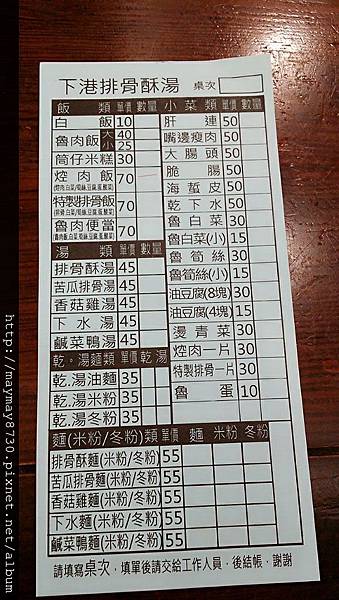 下港排骨酥湯 桌次
飯 類 單價 數量
白 飯 10
魯肉飯 大 40
小 25
筒仔米糕 30
焢肉飯 70
特製排骨飯 70
魯肉便當 70
湯 類 單價 數量
排骨酥湯 45
苦瓜排骨湯 45
香菇雞湯 45
下水湯 45
鹹菜鴨湯 45
乾。湯麵類 單價 乾 湯
乾.湯油麵 35
乾.湯米粉 35
乾.湯冬粉 35
小菜類 單價 數量
肝連 50
嘴邊瘦肉 50
大腸頭 50
脆腸 50
海蜇皮 50
乾下水 50
魯白菜 30
魯白菜(小) 15
魯筍絲 30
魯筍絲(小) 15
油豆腐(8塊) 30
油豆腐(4塊) 15
燙青菜 30
焢肉一片 30
特製排骨一片 30
魯蛋 10
麵(米粉/冬粉)類 單價 麵 米粉 冬粉
排骨酥麵(米粉/冬粉) 55
苦瓜排骨麵(米粉/冬粉) 55
香菇雞麵(米粉/冬粉) 55
下水麵(米粉/冬粉) 55
鹹菜鴨麵(米粉/冬粉) 55
請填寫桌次，填單後請交給工作人員，後結帳，謝謝
http://maymay8730.pixnet.net/album